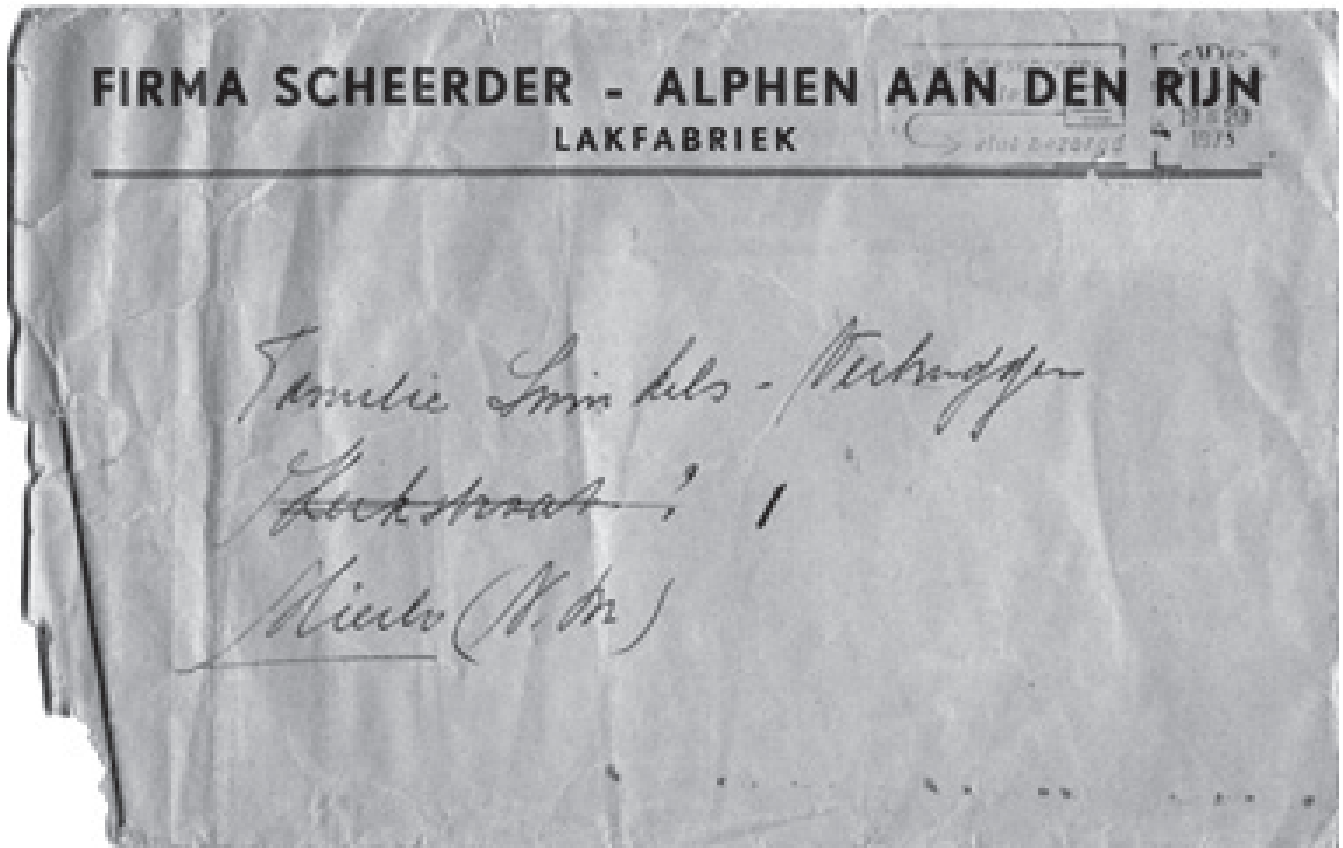 FIRMA SCHEERDER - ALPHEN AAN DEN RIJN
LAKFABRIEK
vlot bezorgd
1973
Familie - Verbruggen
Kerkstraat
Mierlo (N.Br)